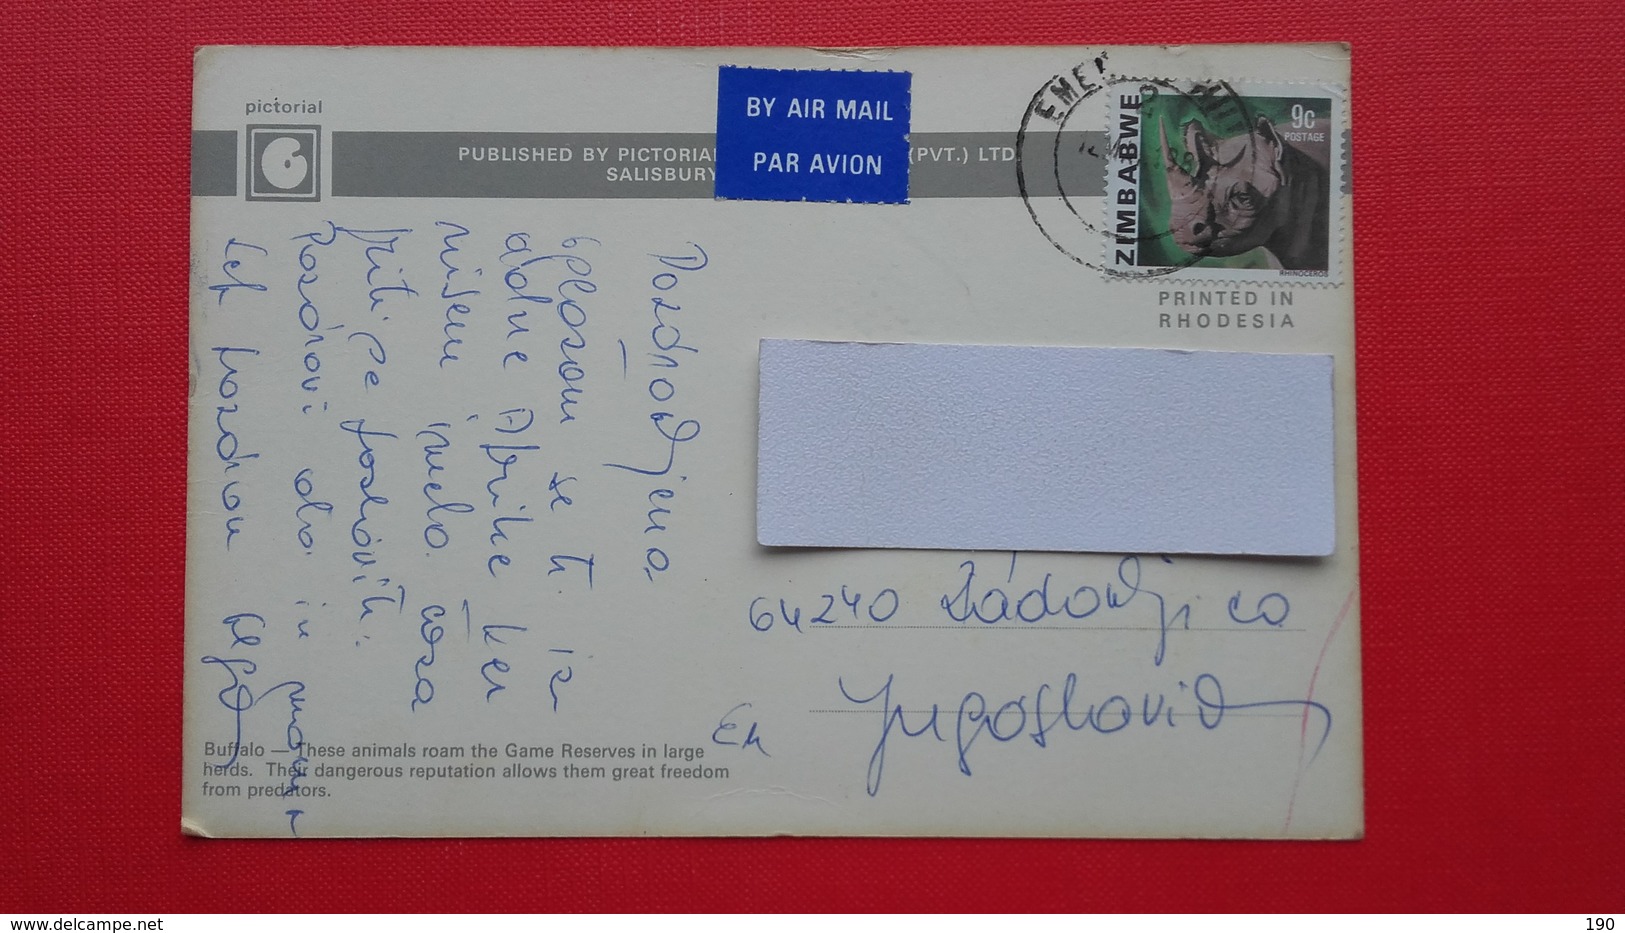 pictorial
PUBLISHED BY PICTORIA (PVT.) LTD
SALISBURY
BY AIR MAIL
PAR AVION
EME
ZIMBABWE
9c
POSTAGE
RHINOCEROS
PRINTED IN
RHODESIA
Pozdravljena
oglasam se ti iz
Afrike ker
nisem imela časa
priti se poslovit.
Pozdravi in
Lep pozdrav
64240 Radovljica
Jugoslavia
Buffalo — These animals roam the Game Reserves in large
herds. Their dangerous reputation allows them great freedom
from predators.
delcampe.net
190